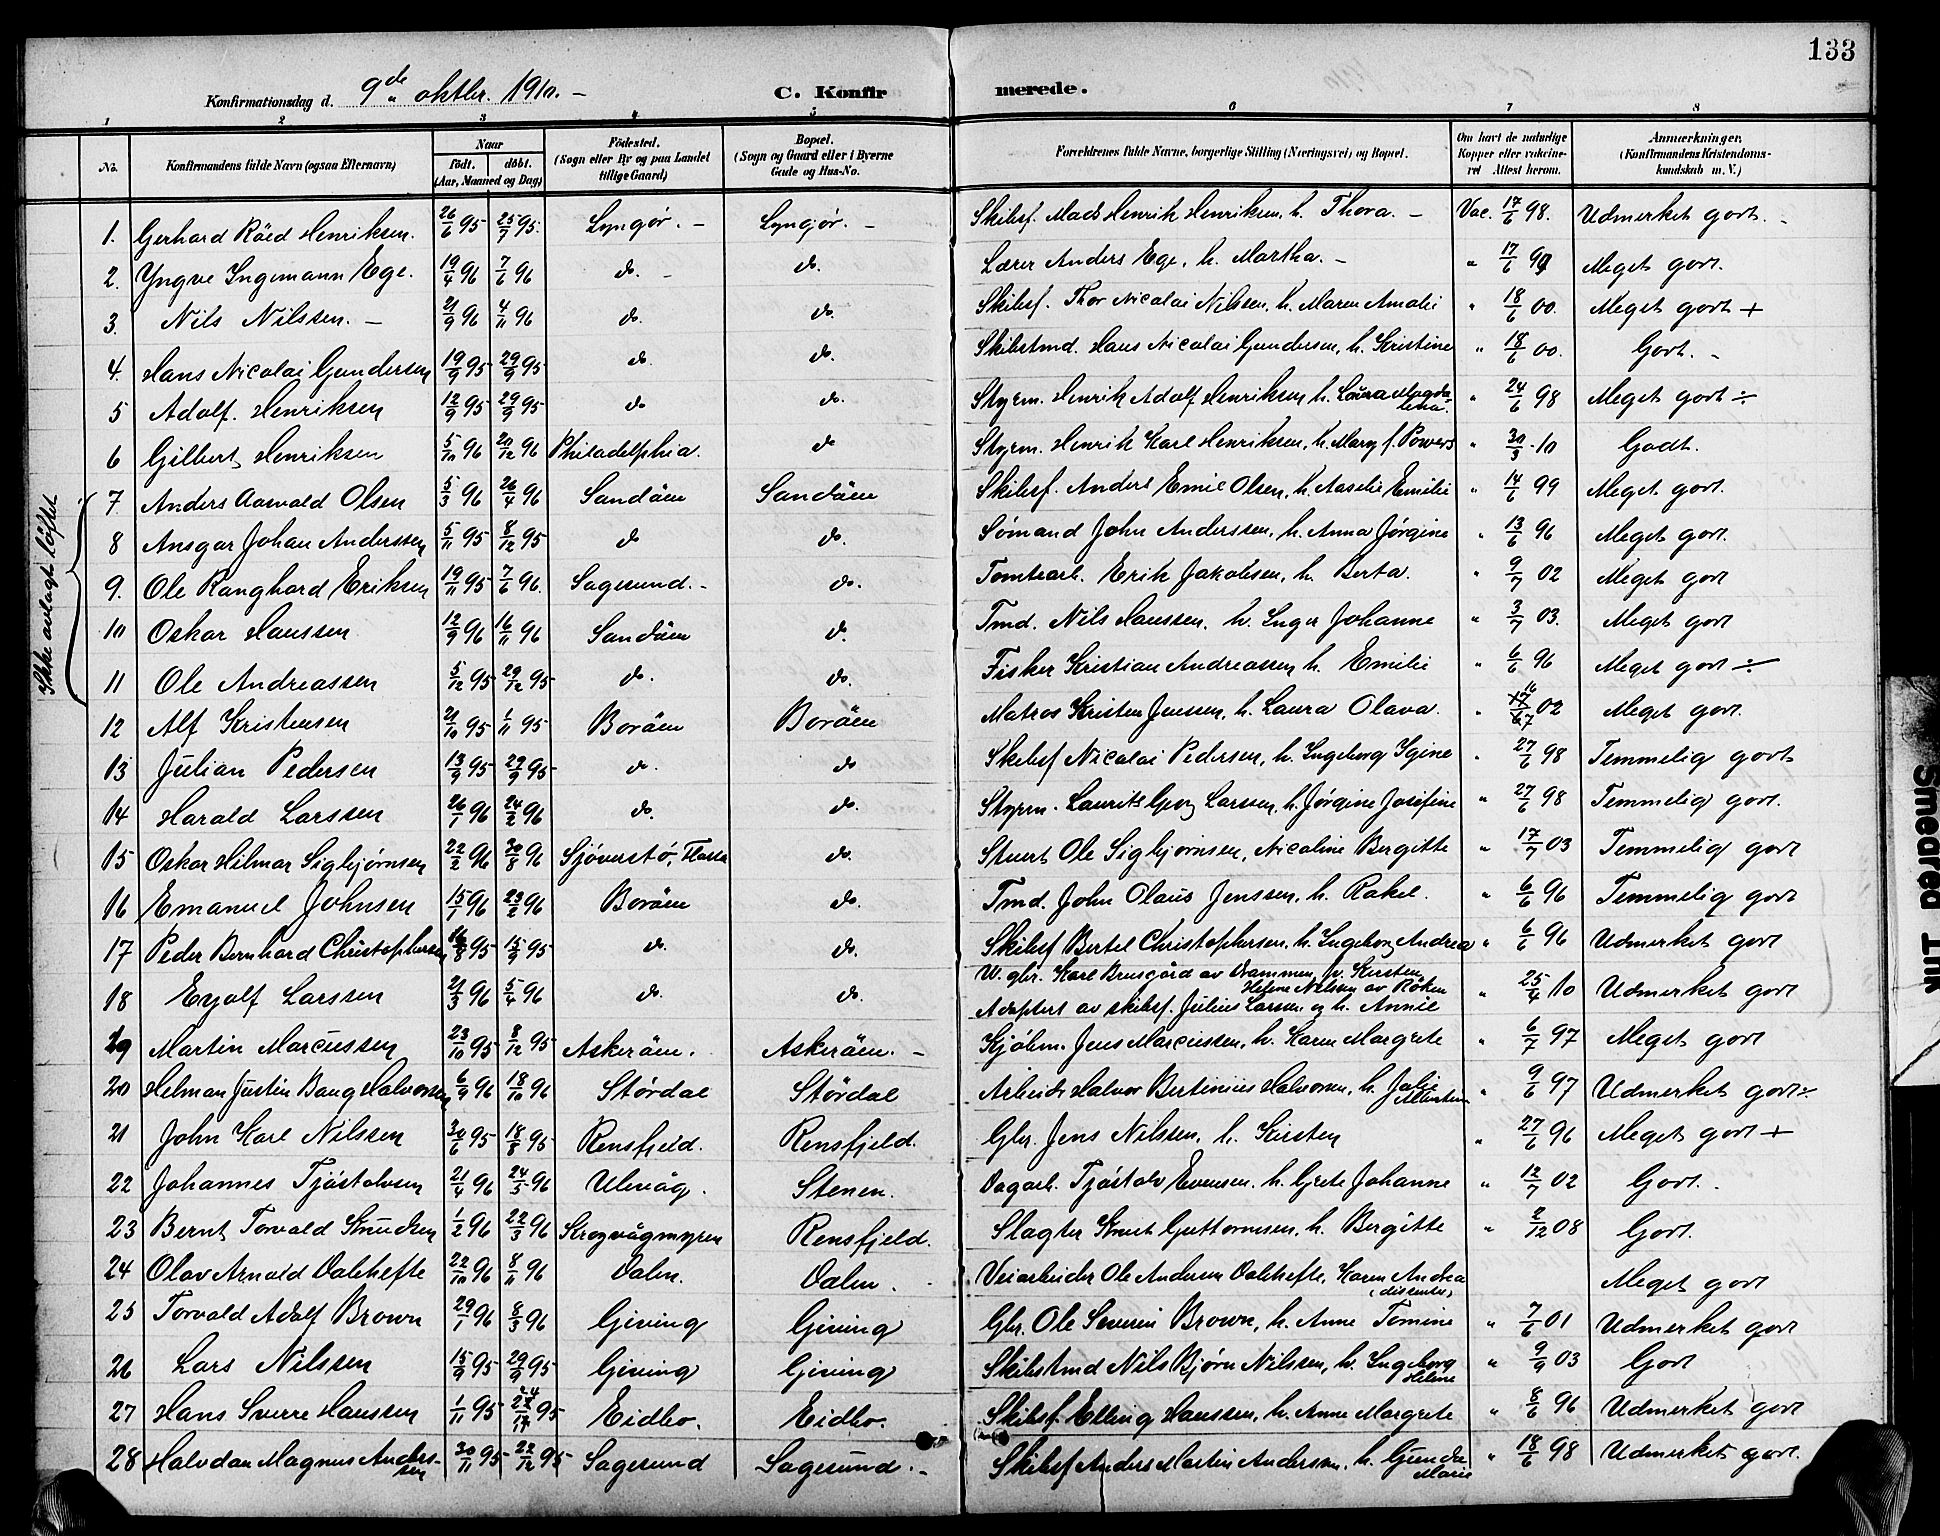 133
Konfirmationsdag d. 9de oktbr. 1910. – C. Konfirmerede.
1 2 3 4 5 6 7 8
No. Konfirmandens fulde Navn (ogsaa Efternavn) Naar født. døbt. (Aar, Maaned og Dag) Fødested. (Sogn eller By og paa Landet tillige Gaard) Bopæl. (Sogn og Gaard eller i Byerne Gade og Hus-No. Forældrenes fulde Navne, borgerlige Stilling (Næringsvei) og Bopæl. Om havt de naturlige Kopper eller vakcineret Attest herom. Anmærkninger. (Konfirmandens Kristendomskundskab m. V.)
1. Gerhard Röed Henriksen. 26/6 95 25/7 95. Lyngør. – Lyngjör. – Skibsf. Mads Henrik Henriksen, h. Thora. – Vac. 17/6 98. Udmerket godt. –
2. Yngve Ingemann Ege. 19/4 96 7/6 96 do. – do. Lærer Anders Ege, h. Martha. – " 17/6 99 Meget godt.
3. Nils Nilssen. – 21/9 96 4/11 96 do. do. Skibsf. Thor Nicolai Nilssen, h. Maren Amalie " 18/6 00. Meget godt +
4. Hans Nicolai Gundersen 19/9 95 29/9 95 do do. Skibstmd. Hans Nicolai Gundersen, h. Kristine " 18/6 00. Godt. –
5 Adolf. Henriksen 12/9 95 29/9 95 do do. Styrm. Henrik Adolf Henriksen h. Laura Magdalena. " 24/6 98 Meget godt ÷
6 Gilbert Henriksen 5/11 96 20/12 96 Philadelphia. do Styrm. Henrik Karl Henriksen, h. Mary f. Powers " 30/3 10 Godt.
Ikke avlagt løftet
7 Anders Aasvald Olsen 5/3 96 26/4 96 Sandöen Sandöen Skibsf. Anders Emil Olsen, h. Aaselie Emilie " 14/6 99 Meget godt.
8 Ansgar Johan Anderssen 5/11 95 8/12 95 do do. Sømand John Anderssen, h. Anna Jørgine " 13/6 96 Meget godt.
9. Ole Ranghard Eriksen 19/11 95 7/6 96. Sagesund. – do. Tomtearb. Erik Jakobsen, h. Berta. " 9/7 02 Meget godt
10 Oskar Hanssen 12/9 96 16/11 96 Sandöen do. Tmd. Nils Hanssen, h. Inger Johanne " 3/7 03. Meget godt
11 Ole Andreassen 5/12 95 29/12 95 do. do. Fisker Kristian Andreassen h. Emilie " 6/6 96 Meget godt ÷
12 Alf Kristensen 21/10 95 1/11 95 Boröen Boröen Matros Kristen Jenssen, h. Laura Olava. " 16/7 02 Meget godt.
13 Julian Pedersen 13/9 95 29/9 95 do. do Skibsf Nicolai Pedersen, h. Ingeborg Igine " 27/6 98 Temmelig godt
14 Harald Larssen 26/1 96 24/2 96 do. do. Styrm. Laurits Georg Larssen, h. Jørgine Josifine " 27/6 98 Temmelig godt.
15 Oskar Hilmar Sigbjørnsen 22/2 96 30/8 96 Sjöverstö, Flosta do. Stuert Ole Sigbjørnsen, Nicoline Bergitte " 17/7 03 Temmelig godt
16 Emanuel Johnsen 15/1 96 23/2 96 Boröen do. Tmd. John Olaus Jenssen, h. Rakel. " 6/6 96 Temmelig godt
17 Peder Bernhard Christophersen 16/8 95 15/9 95 do. do. Skibsf Bertel Christophersen, h. Ingeborg Andrea " 6/6 96 Udmerket godt
18 Eyolf Larssen 21/3 96 5/4 96 do. do. U. gbr. Karl Brusgård av Drammen, p. Kirsten Helene Nilsen av Röken " 25/4 10 Udmerket godt
Adoptert av skibsf. Julius Larsen og h. Annie
19 Martin Marcussen 23/10 95 8/12 95 Askeröen. Askeröen. – Kjöbm. Jens Marcussen, h. Karen Margrete " 6/7 97 Meget godt
20 Helman Justin Bang Halvorsen 6/9 96 18/10 96 Stördal Stördal Arbeider Halvor Bertinius Halvorsen, h. Julie Albertine " 9/6 97 Udmerket godt ÷
21 John Karl Nilssen 30/6 95 18/8 95 Rensfjeld. Rensfjeld. Gbr. Jens Nilssen, h. Kirsten " 27/6 96 Meget godt +
22 Johannes Tjøstolvsen 21/4 96 24/5 96 Ulevåg. Stenen. Dagarb. Tjøstolv Evensen. h. Grete Johanne " 12/7 02 Godt.
23 Bernt Torvald Knudsen 1/2 96 22/3 96 Krogvågmyren Rensfjeld. Slagter Knut Guttormsen, h. Bergitte " 2/12 08 Godt.
24 Olav Arnold Dalehefte 22/10 96 8/11 96 Dalen. Dalen. Veiarbeider Ole Andersen Dalehefte, Karen Andrea (dissenter) Meget godt
25 Torvald Adolf Brown 29/1 96 8/3 96 Giving Giving Gbr. Ole Severin Brown, h. Anne Tomine " 7/6 01 Udmerket godt
26 Lars Nilssen 15/9 95 29/9 95 Giving Giving Skibstmd Nils Bjørn Nilssen, h. Ingeborg Helene " 9/9 03 Godt
27 Hans Sverre Hanssen 1/11 95 95 Eidbo. Eidbo. Skibsf. Elling Hanssen, h. Anne Margrete " 8/6 96 Udmerket godt
28 Halvdan Magnus Anderssen 30/11 95 22/12 95 Sagesund Sagesund. – Skibsf Anders Martin Andersen, h. Gunda Marie " 18/6 98 Udmerket godt.
Smeared Ink